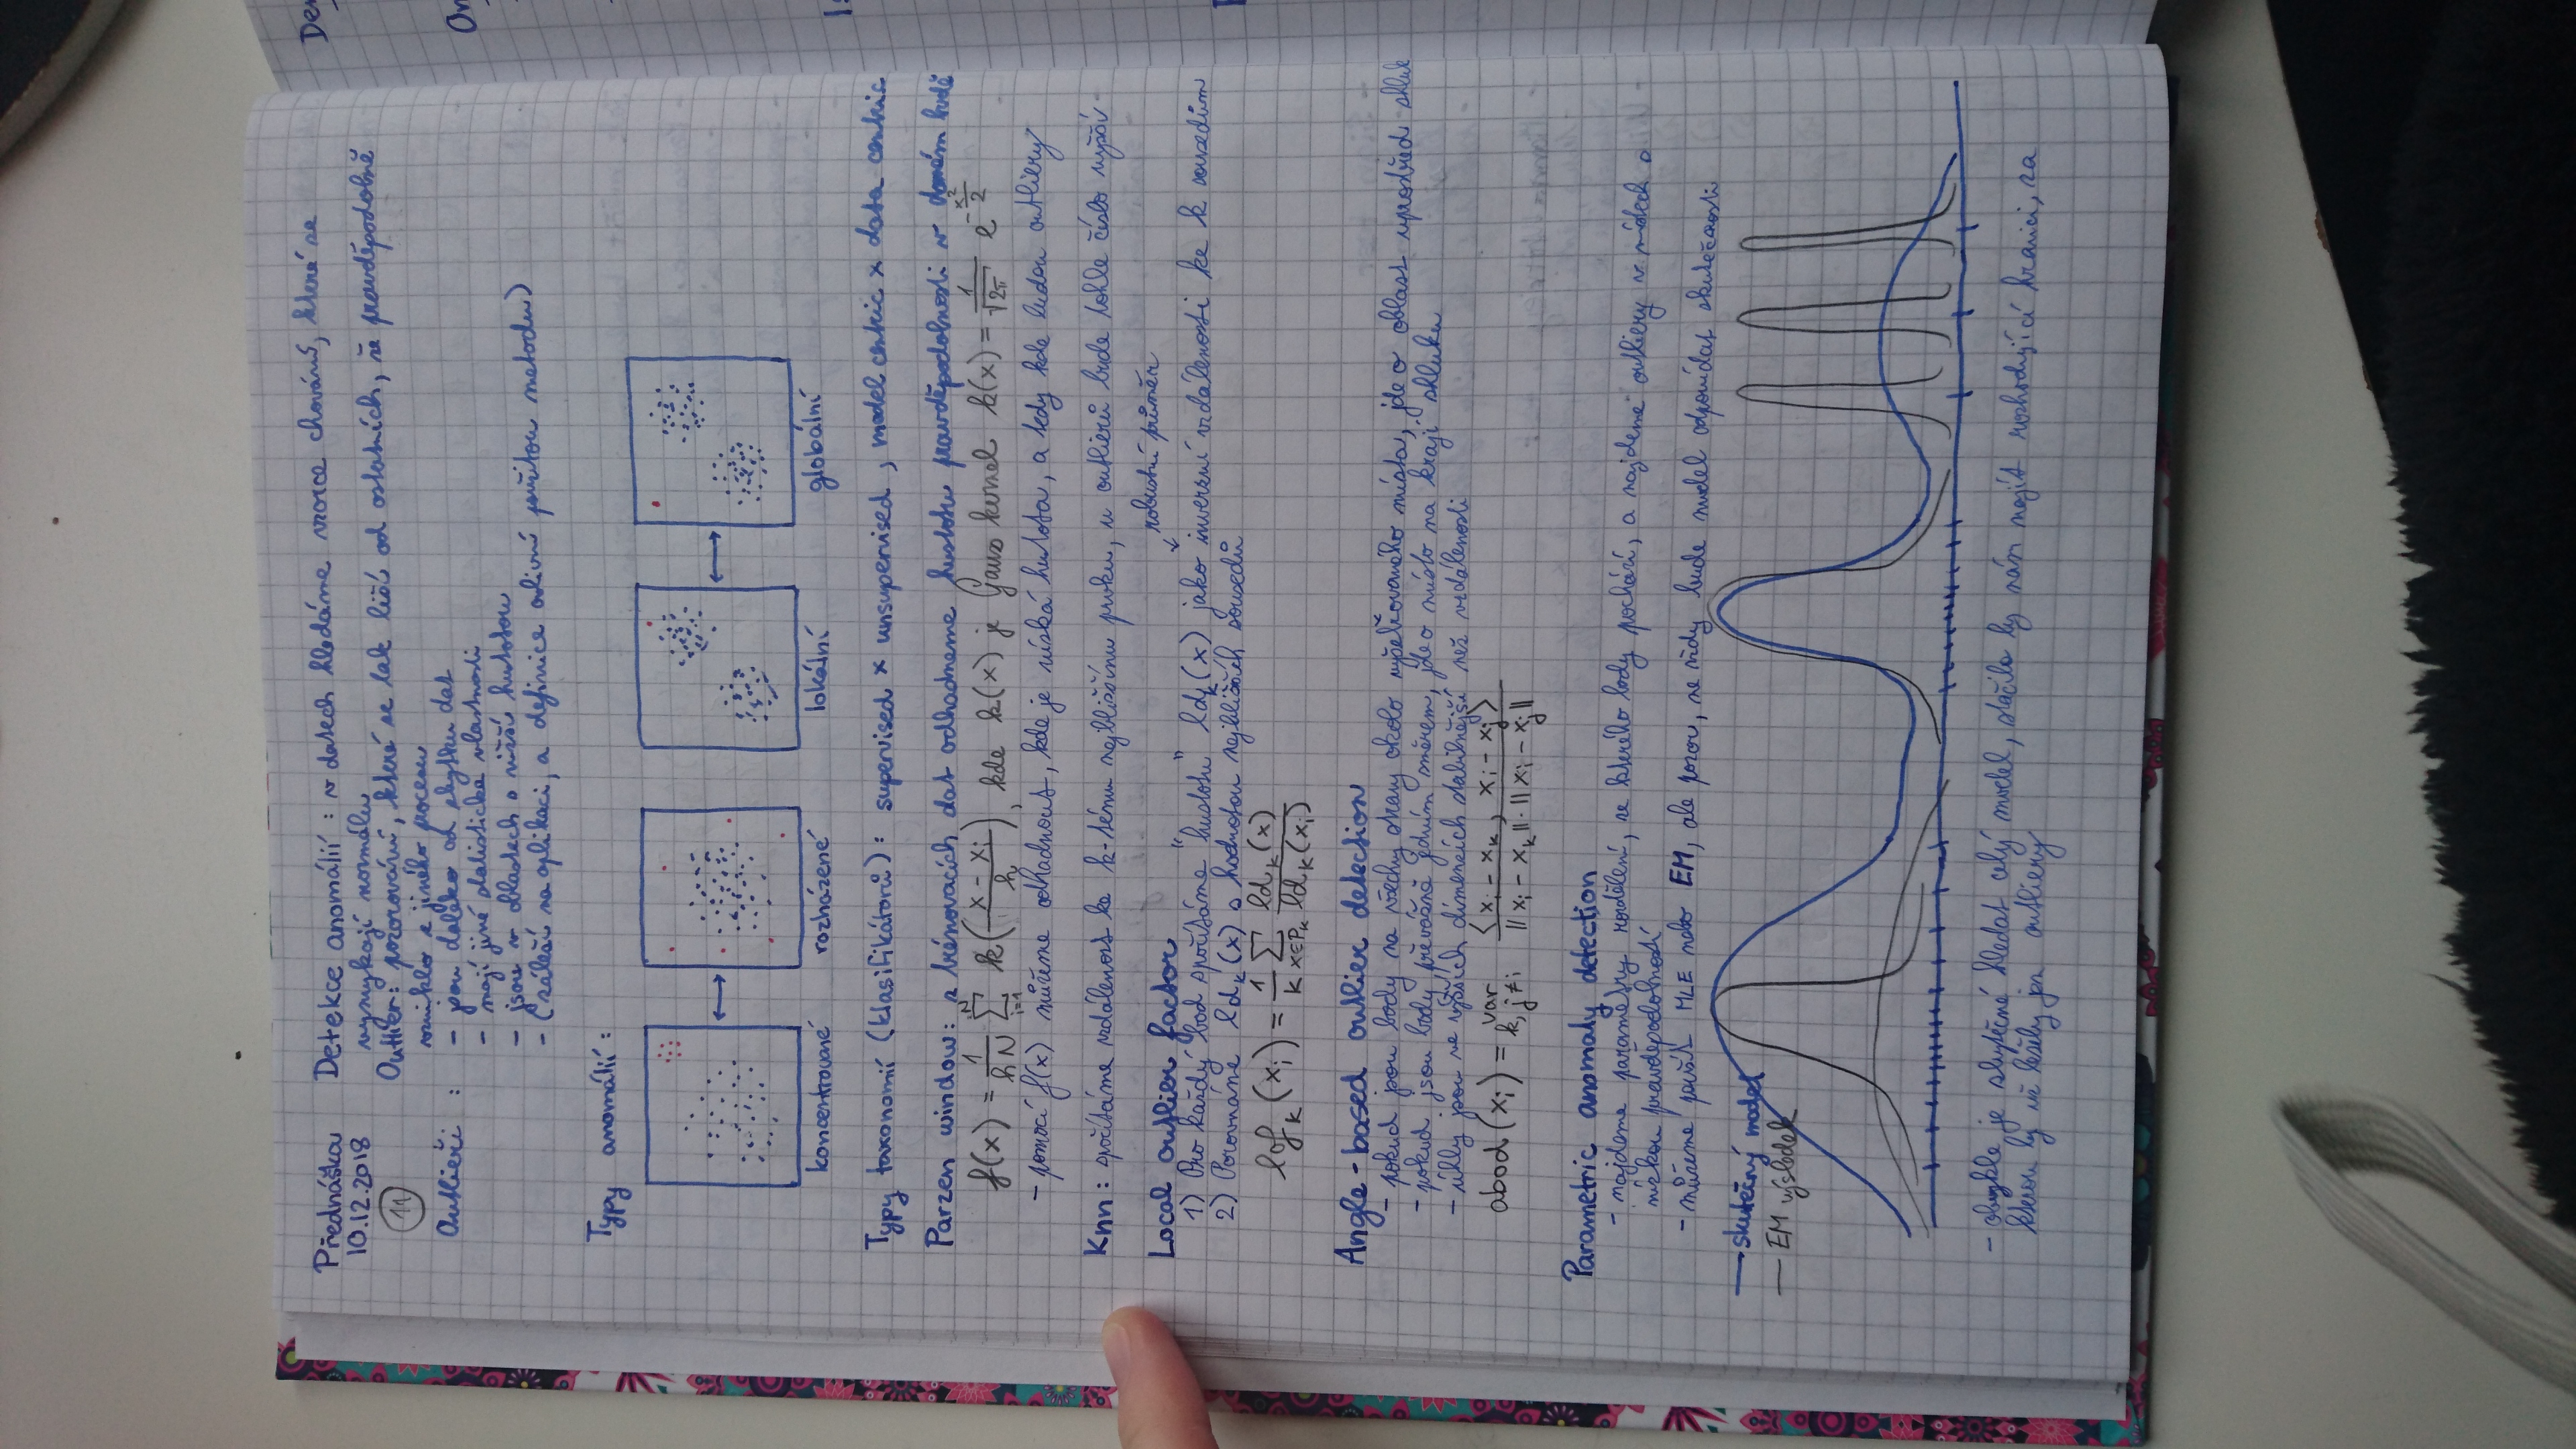 Přednáška
10.12.2018
11
Detekce anomálií : v datech hledáme vzorce chování, které se
vymykají normálu
Outlier: pozorování, které se tak liší od ostatních, že pravděpodobně
vzniklo z jiného procesu
Outlieři : - jsou daleko od zbytku dat
- mají jiné statistické vlastnosti
- jsou v oblastech s nižší hustotou
- (záleží na aplikaci, a definice ovlivní použitou metodu)
Typy anomálií :
koncentrované rozházené lokální globální
Typy taxonomií (klasifikátorů) : supervised x unsupervised, model centric x data centric
Parzen window: z trénovacích dat odhadneme hustotu pravděpodobnosti v daném bodě
f(x) = 1/(hN) ∑_{i=1}^{N} k((x - x_i)/h), kde k(x) je Gauss kernel k(x) = 1/√(2π) e^{-x²/2}
- pomocí f(x) můžeme odhadnout, kde je nízká hustota, a tedy kde budou outliery
Knn : spočítáme vzdálenost ke k-tému nejbližšímu prvku, u outlierů bude tohle číslo vyšší
robustní průměr
Local outlier factor
1) Pro každý bod spočítáme "hustotu" ld_k(x) jako inverzní vzdálenosti ke k sousedům
2) Porovnáme ld_k(x) s hodnotou nejbližších sousedů
lof_k(x_i) = 1/k ∑_{x∈P_k} ld_k(x)/ld_k(x_i)
Angle-based outlier detection
- pokud jsou body na všechny strany okolo vyšetřovaného místa, jde o oblast uprostřed shluk
- pokud jsou body převážně jedním směrem, jde o místo na kraji shluku
- úhly jsou ve vyšších dimenzích stabilnější než vzdálenosti
abod(x_i) = var_{k, j≠i} ⟨x_i - x_k, x_i - x_j⟩ / (||x_i - x_k|| · ||x_i - x_j||)
Parametric anomaly detection
- najdeme parametry rozdělení, ze kterého body pochází, a najdeme outliery v místech s
nízkou pravděpodobností
- můžeme použít MLE nebo EM, ale pozor, ne vždy bude model odpovídat skutečnosti
— skutečný model
— EM výsledek
- obvykle je zbytečné hledat celý model, stačilo by nám najít rozhodující hranici, za
kterou by už ležely jen outliery
Der